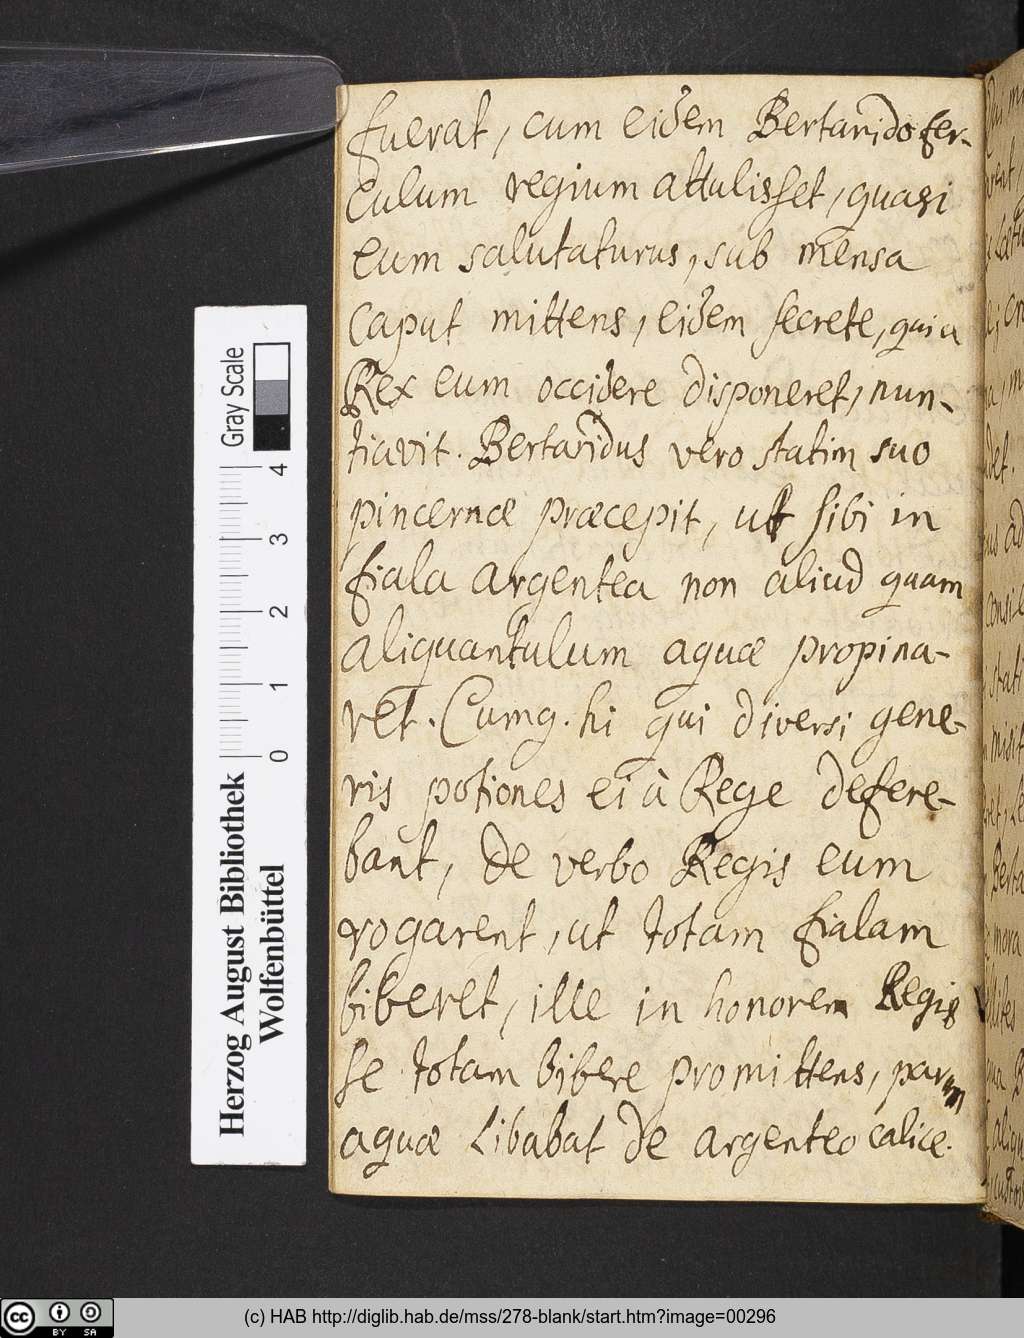 fuerat, cum eidem Bertarido fer-
culum regium attulisset, quasi
eum salutaturus, sub mensa
Caput mittens, eidem secrete, quia
Rex eum occidere disponeret, nun-
tiavit. Bertaridus vero statim suo
pincernæ præcepit, ut sibi in
fiala argentea non aliud quam
aliquantulum aquæ propina-
ret. Cumq. hi qui diversi gene-
ris potiones ei à Rege defere-
bant, de verbo Regis eum
rogarent, ut totam fialam
biberet, ille in honorem Regis
se totam bibere promittens, parum
aquæ libabat de argenteo calice.
Gray Scale
0 1 2 3 4
Herzog August Bibliothek
Wolfenbüttel
cc BY SA
(c) HAB http://diglib.hab.de/mss/278-blank/start.htm?image=00296